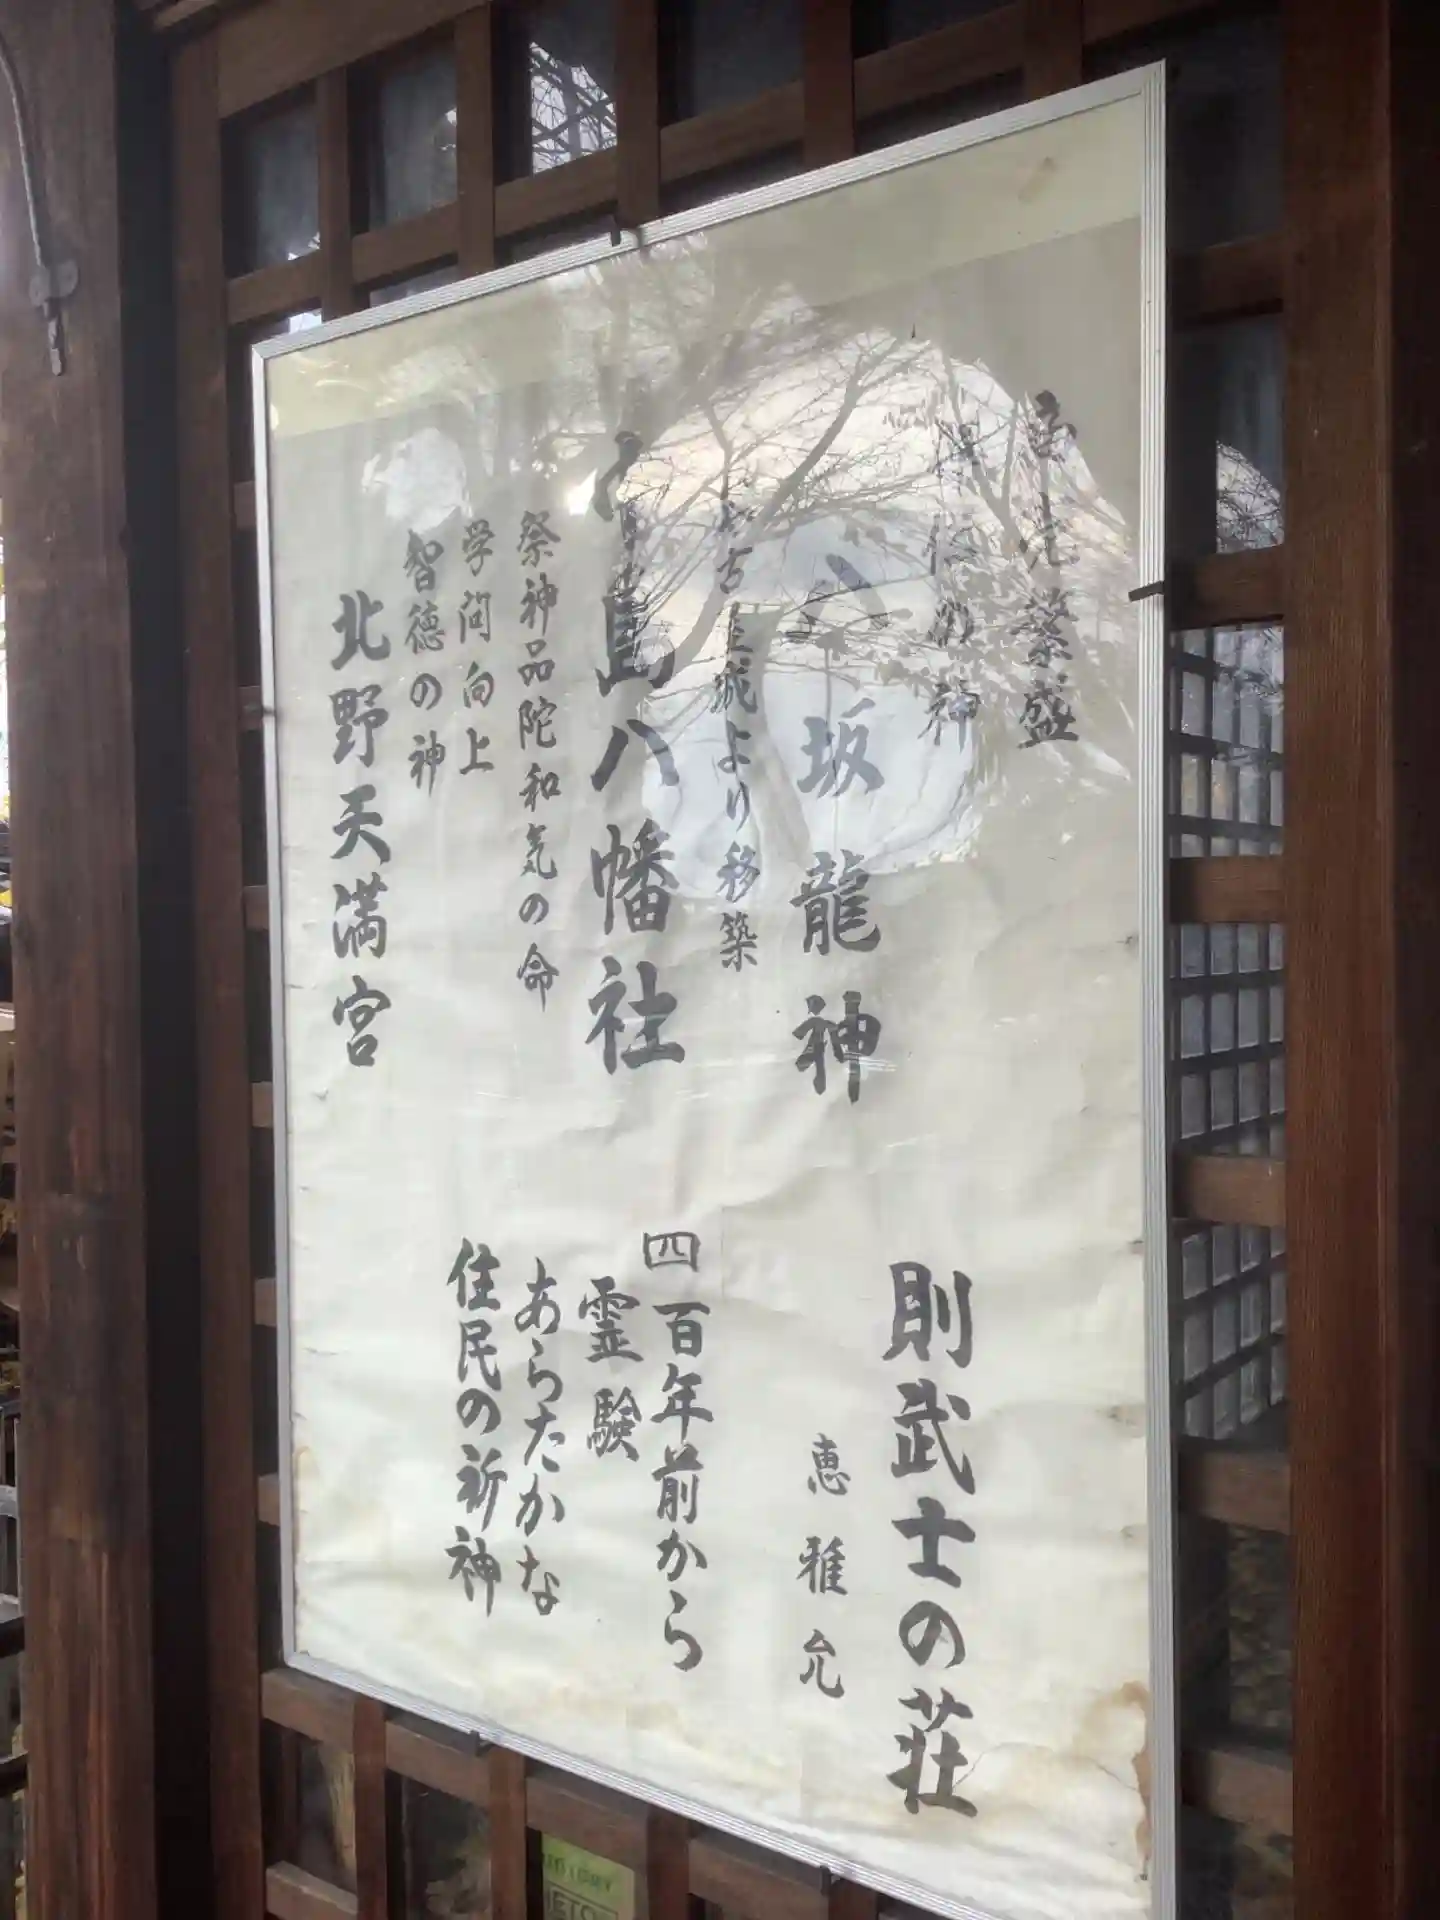 繁盛
の神
八坂龍神
より移築
島八幡社
祭神品陀和気の命
学問向上
智徳の神
北野天満宮
則武士の荘
恵雅允
四百年前から
霊験
あらたかな
住民の祈神